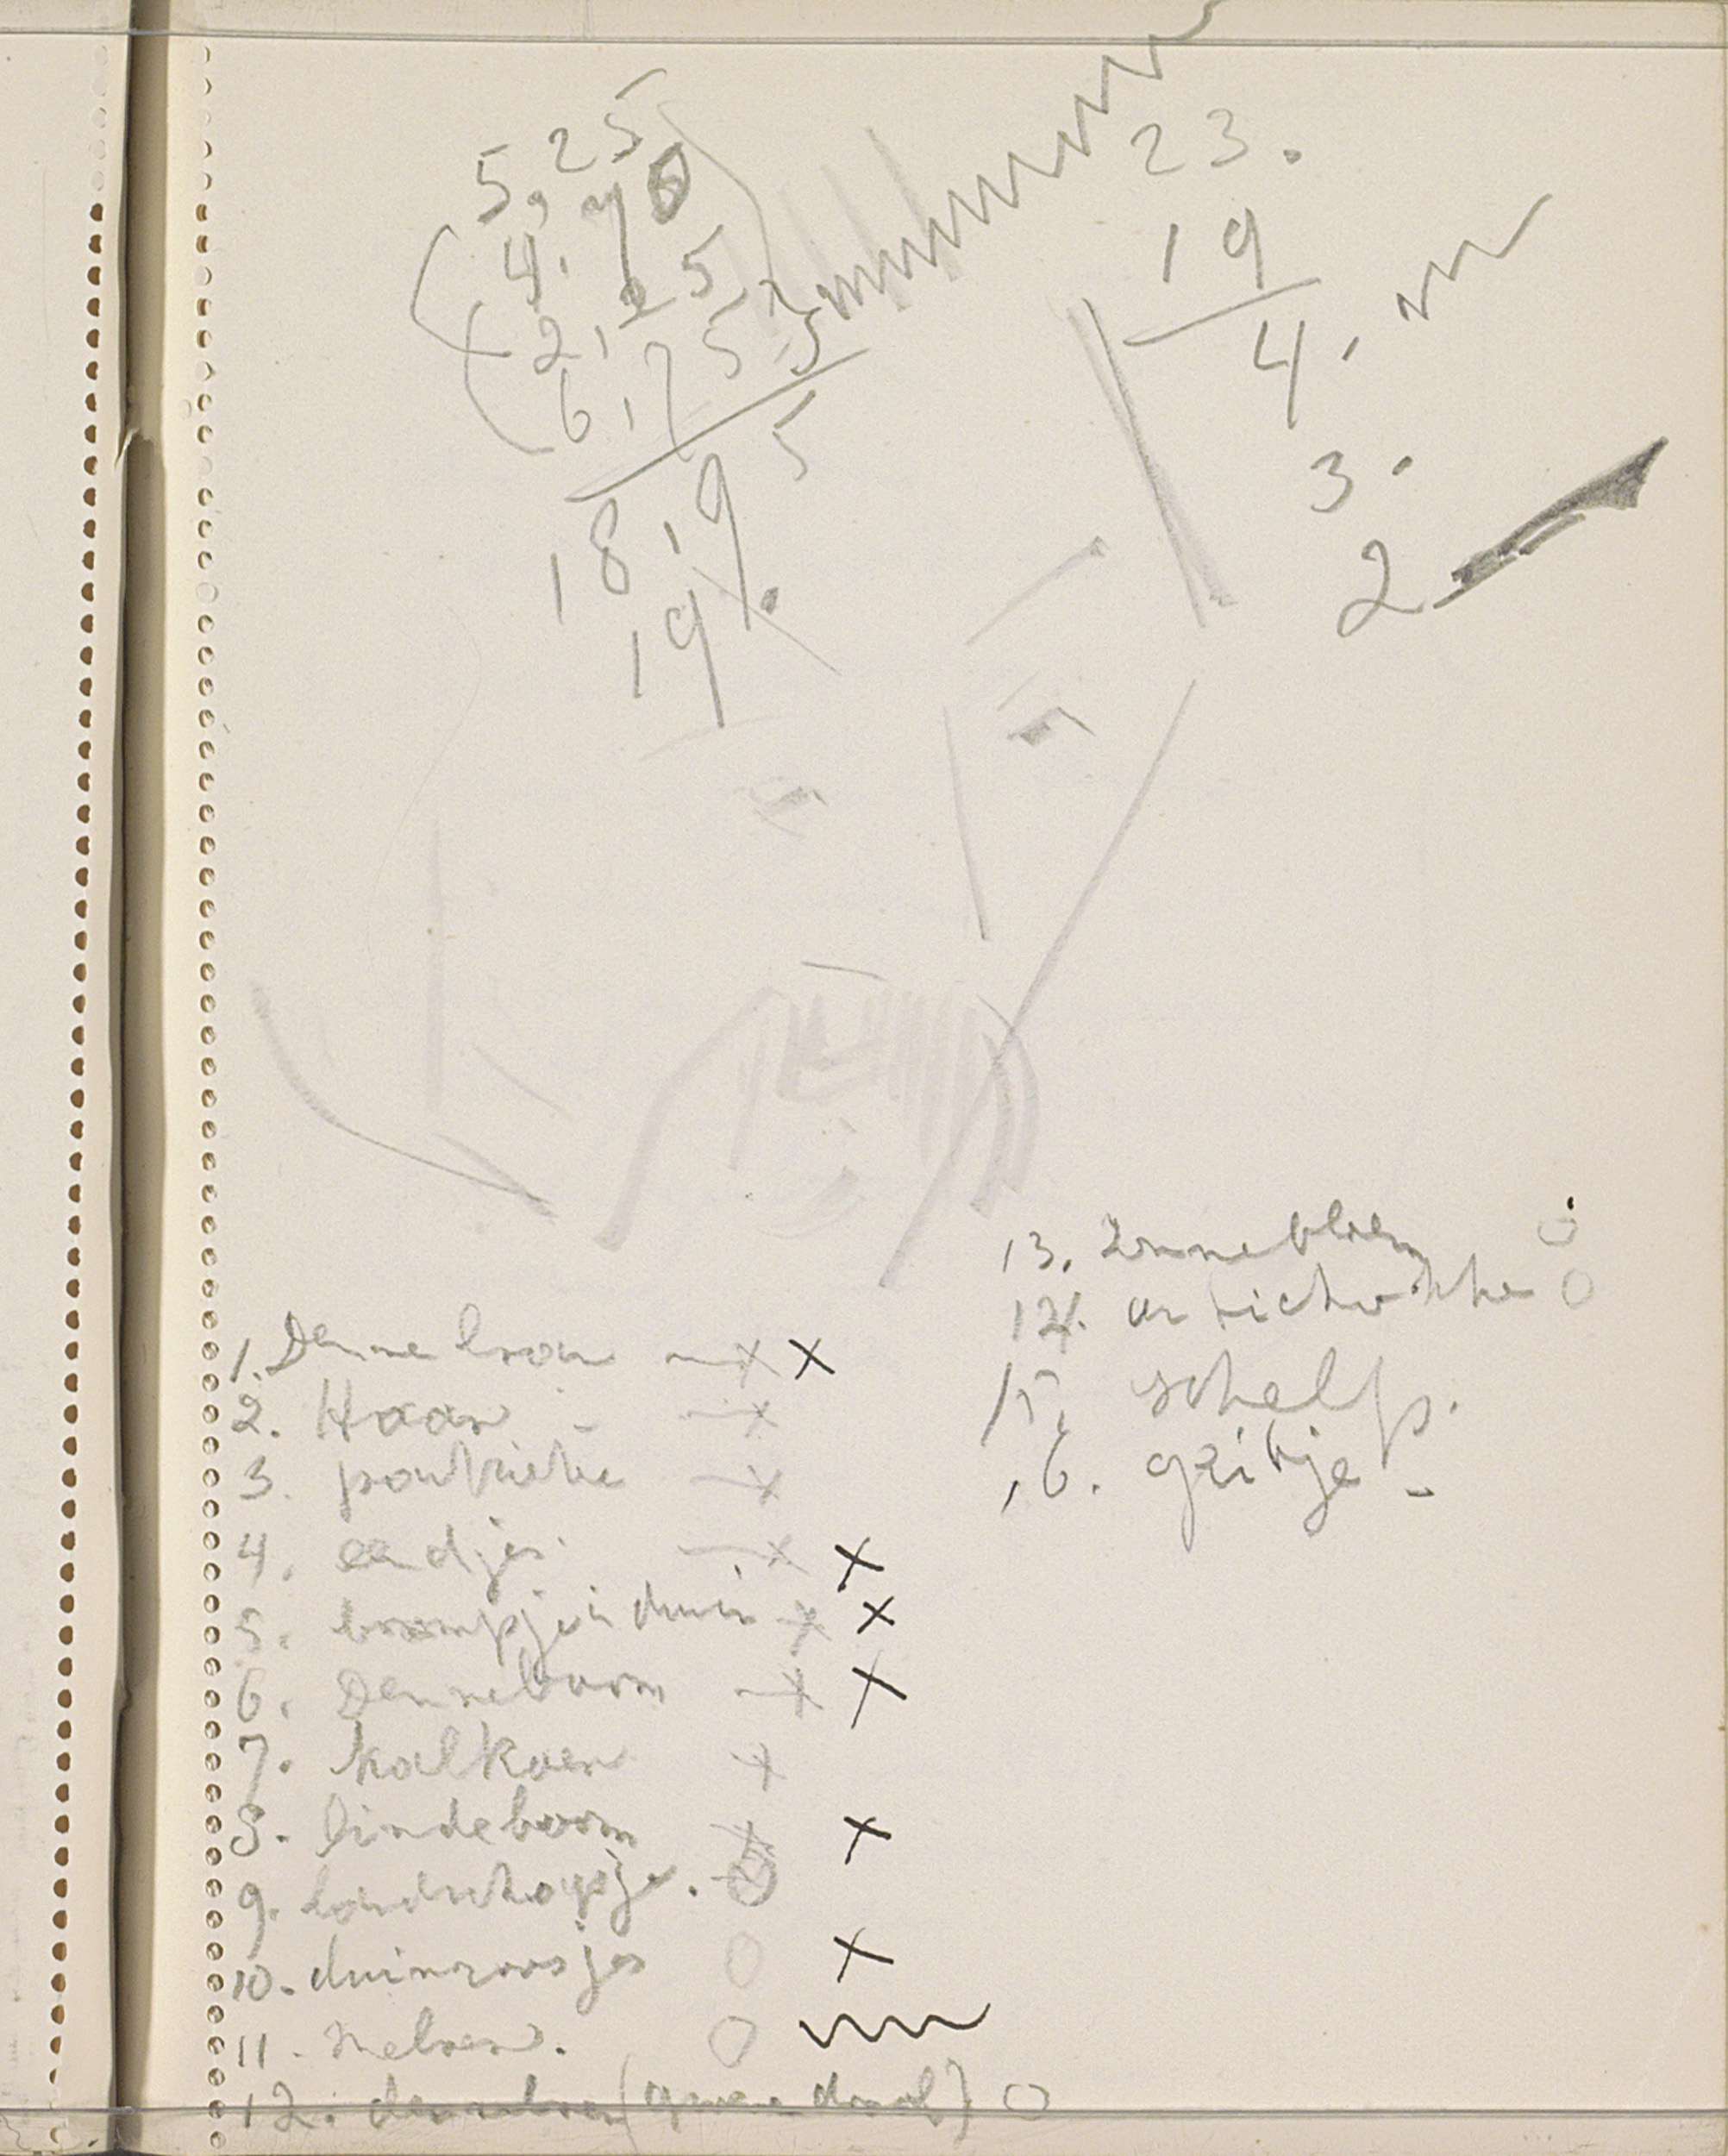 5,25
4.70
2,25
6,75
18,95
19
23.
19
4.
3.
2
13. Zonnebloem
14. artichokke
15. schelp.
16. geitje -
1. Denneboom
2. Haan -
3. patrietze
4. eendjes.
5. boompje in duin
6. Denneboom
7. kalkoen
8. lindeboom
9. landschapje.
10. duinroosjes
11.
12.